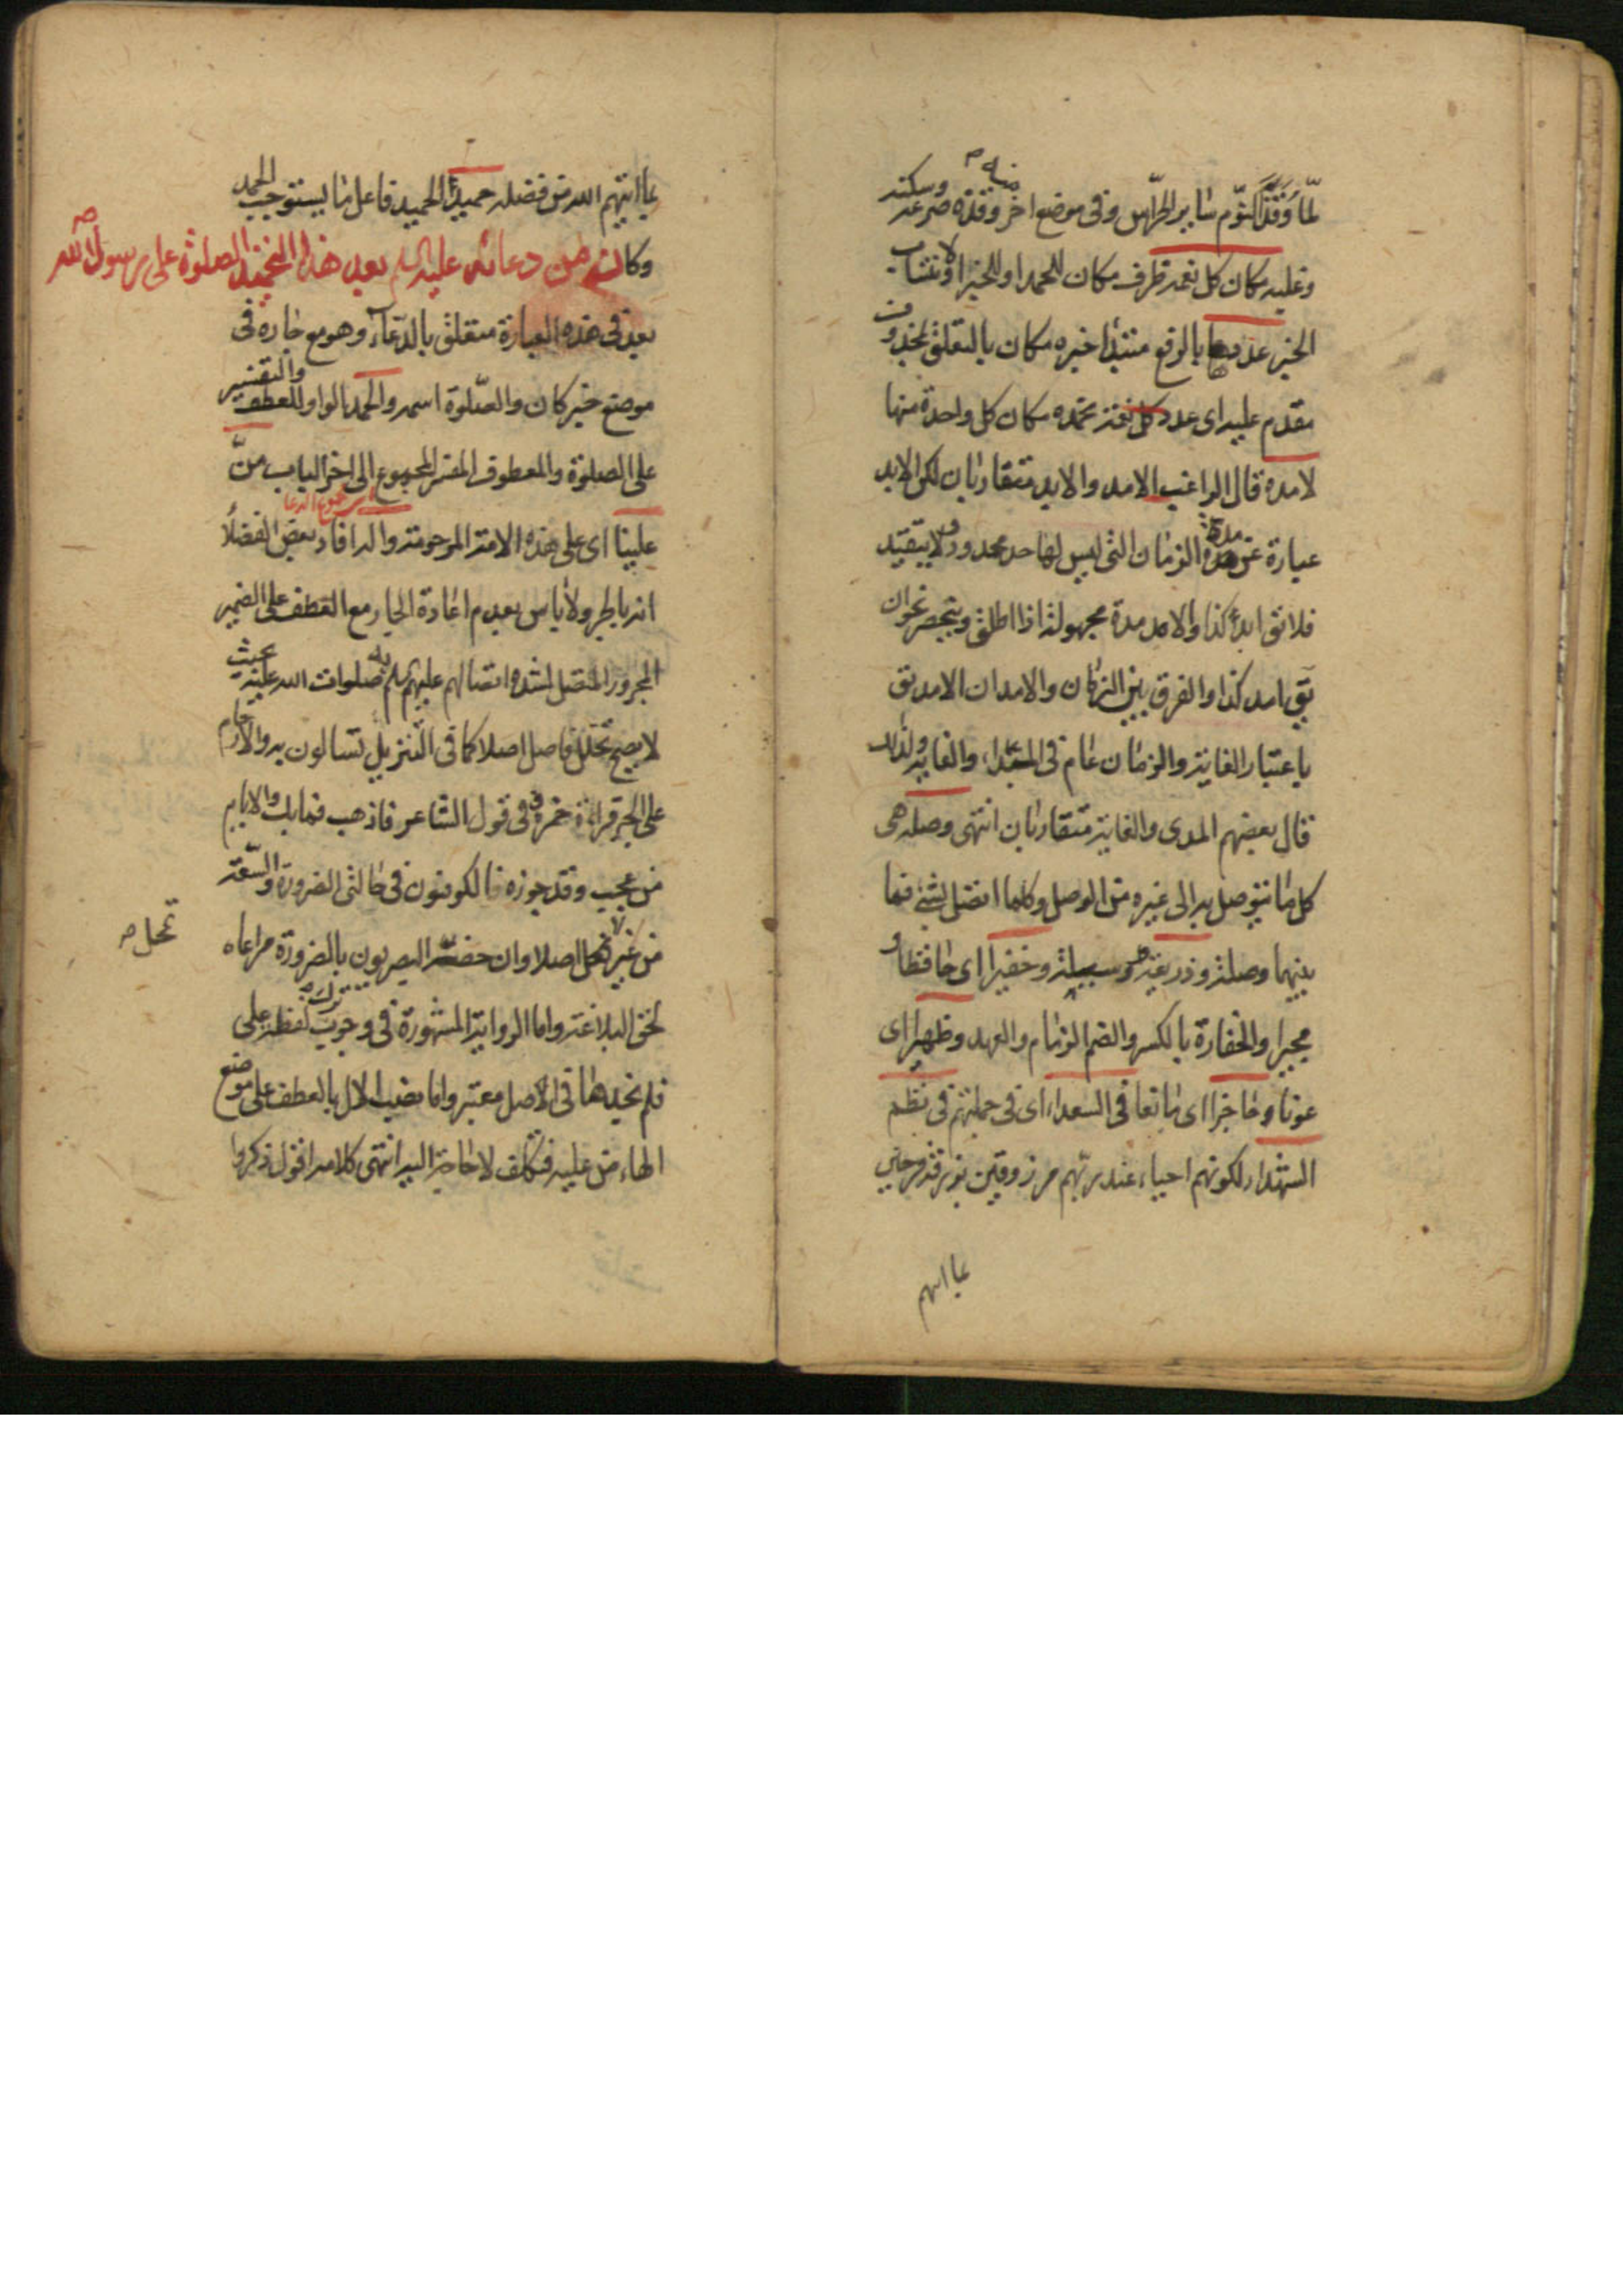 لمّا وَقَذَ النوّم سَاير الحرّاس وفى موضع اخر وقذه صرعه وسكنه
وغلبه مكان كل نعمة ظرف مكان للحمد او للخبر او
الخبر عددها بالرفع مبتدأ خبره مكان بالتعلق بمحذوف
مقدم عليه اى عدد كل نعمة تحمده مكان كل واحدة منها
لامده قال الراغب الامد والابد متقاربان لكن الابد
عبارة عن مدة الزمان التى ليس لها حد محدود ولا يتقيد
فلا يق ابد كذا والامد مدة مجهولة اذا اطلق وينحصر نحو ان
يق امد كذا والفرق بين الزمان والامد ان الامد يق
باعتبار الغاية والزمان عام فى المبدا والغاية ولذلك
قال بعضهم المدى والغاية متقاربان انتهى وصلة هى
كل ما يتوصل به الى غيره من الوصل وكلما اتصل بشئ فما
بينهما وصلة وذريعة وسيلة وخفيرا اى حافظا و
مجيرا والخفارة بالكسر والضم الزمام والعهد وظهيرا اى
عونا وحاجزا اى مانعا فى السعداء اى فى جملتهم فى نظم
الشهداء لكونهم احياء عند ربهم مرزوقين يرزقه فرحين
بما اتيهم
بما اتيهم الله من فضله حميد الحميد فاعل ما يستوجب الحمد
وكان من دعائه عليه السلم بعد هذا التحميد الصلوة على رسول الله ص
بعد فى هذه العبارة متعلق بالدعاء وهو مع جاره فى
موضع خبر كان والصّلوة اسمه والحمد بالواو للعطف والتفسير
على الصلوة والمعطوف المفسر المجموع الى اخر الباب منّ
مجموع الدعا
علينا اى على هذه الامة المرحومة واله افاد بعض الفضلا
انه باطهر ولا باس بعدم اعادة الجار مع العطف على الضمير
المجرور المتصل لشدة اتصالهم عليهم السلم به صلوات الله عليه بحيث
لا يصح تخلل فاصل اصلا كما فى التنزيل تسالون به والارحام
على الجر قراءة حمزة وفى قول الشاعر فاذهب فما بك والايام
من عجب وقد جوزه الكوفيون فى حالتى الضرورة والسّعة
من غير تمحل اصلا وان خصه البصريون بالضرورة مراعاه
تمحل ص
لحق البلاغة واما الرواية المشهورة فى وجوب ترك لفظة على
فلم نجدها فى الاصل معتبر واما نصب الال بالعطف على موضع
الهاء من عليه فتكلف لا حاجة اليه انتهى كلامه اقول ذكروا